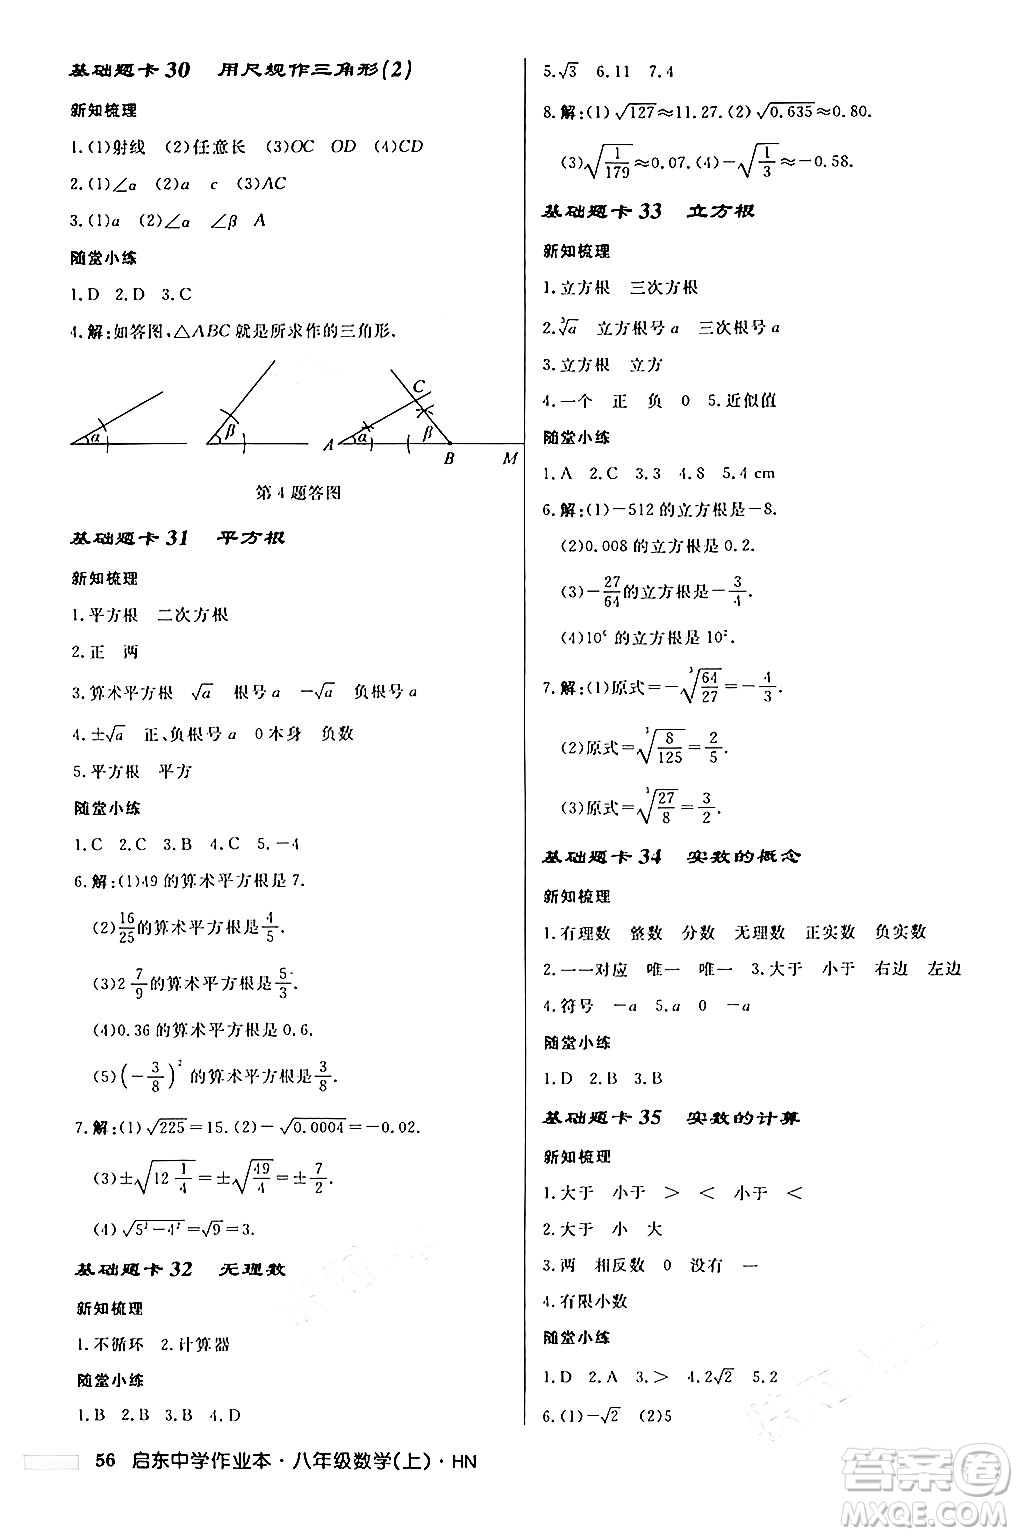 基础题卡 30　用尺规作三角形(2)
新知梳理
1.(1)射线　(2)任意长　(3)OC　OD　(4)CD
2.(1)∠α　(2)a　c　(3)AC
3.(1)a　(2)∠α　∠β　A
随堂小练
1.D　2.D　3.C
4.解:如答图,△ABC 就是所求作的三角形.
α　β　A　α　β　B　M　C
第 4 题答图
基础题卡 31　平方根
新知梳理
1.平方根　二次方根
2.正　两
3.算术平方根　√a　根号 a　－√a　负根号 a
4.±√a　正、负根号 a　0 本身　负数
5.平方根　平方
随堂小练
1.C　2.C　3.B　4.C　5.－4
6.解:(1)49 的算术平方根是 7.
(2)16/25 的算术平方根是 4/5.
(3)2 7/9 的算术平方根是 5/3.
(4)0.36 的算术平方根是 0.6.
(5)(－3/8)² 的算术平方根是 3/8.
7.解:(1)√225＝15.(2)－√0.0004＝－0.02.
(3)±√(12 1/4)＝±√(49/4)＝±7/2.
(4)√(5²－4²)＝√9＝3.
基础题卡 32　无理数
新知梳理
1.不循环　2.计算器
随堂小练
1.B　2.B　3.B　4.D
5.√3　6.11　7.4
8.解:(1)√127≈11.27.(2)√0.635≈0.80.
(3)√(1/179)≈0.07.(4)－√(1/3)≈－0.58.
基础题卡 33　立方根
新知梳理
1.立方根　三次方根
2.∛a　立方根号 a　三次根号 a
3.立方根　立方
4.一个　正　负　0　5.近似值
随堂小练
1.A　2.C　3.3　4.8　5.4 cm
6.解:(1)－512 的立方根是－8.
(2)0.008 的立方根是 0.2.
(3)－27/64 的立方根是－3/4.
(4)10⁶ 的立方根是 10².
7.解:(1)原式＝－∛(64/27)＝－4/3.
(2)原式＝∛(8/125)＝2/5.
(3)原式＝∛(27/8)＝3/2.
基础题卡 34　实数的概念
新知梳理
1.有理数　整数　分数　无理数　正实数　负实数
2.一一对应　唯一　唯一　3.大于　小于　右边　左边
4.符号　－a　5.a　0　－a
随堂小练
1.D　2.B　3.B
基础题卡 35　实数的计算
新知梳理
1.大于　小于　＞　＜　小于　＜
2.大于　小　大
3.两　相反数　0　没有　一
4.有限小数
随堂小练
1.D　2.A　3.＞　4.2√2　5.2
6.(1)－√2　(2)5
56　启东中学作业本·八年级数学(上)·HN
答案圈
MXQE.COM